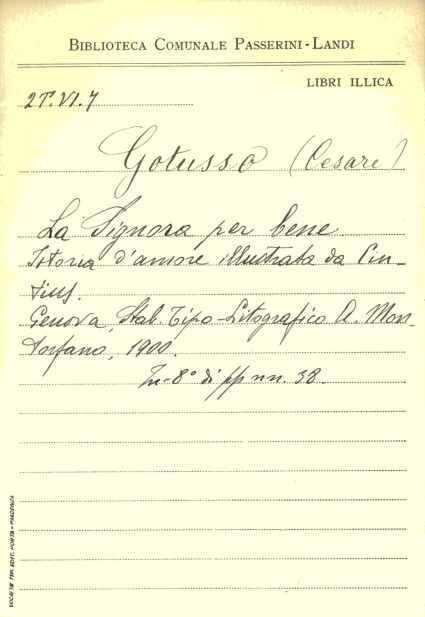 BIBLIOTECA COMUNALE PASSERINI-LANDI
LIBRI ILLICA
2T.VI.7
Gotusso (Cesare)
La Signora per bene.
Istoria d'amore illustrata da Cin-
tius.
Genova, Stab. Tipo-Litografico A. Mon-
torfano, 1900.
In-8° di pp nn. 38.
SOCIETÀ TIP. EDIT. PORTA - PIACENZA